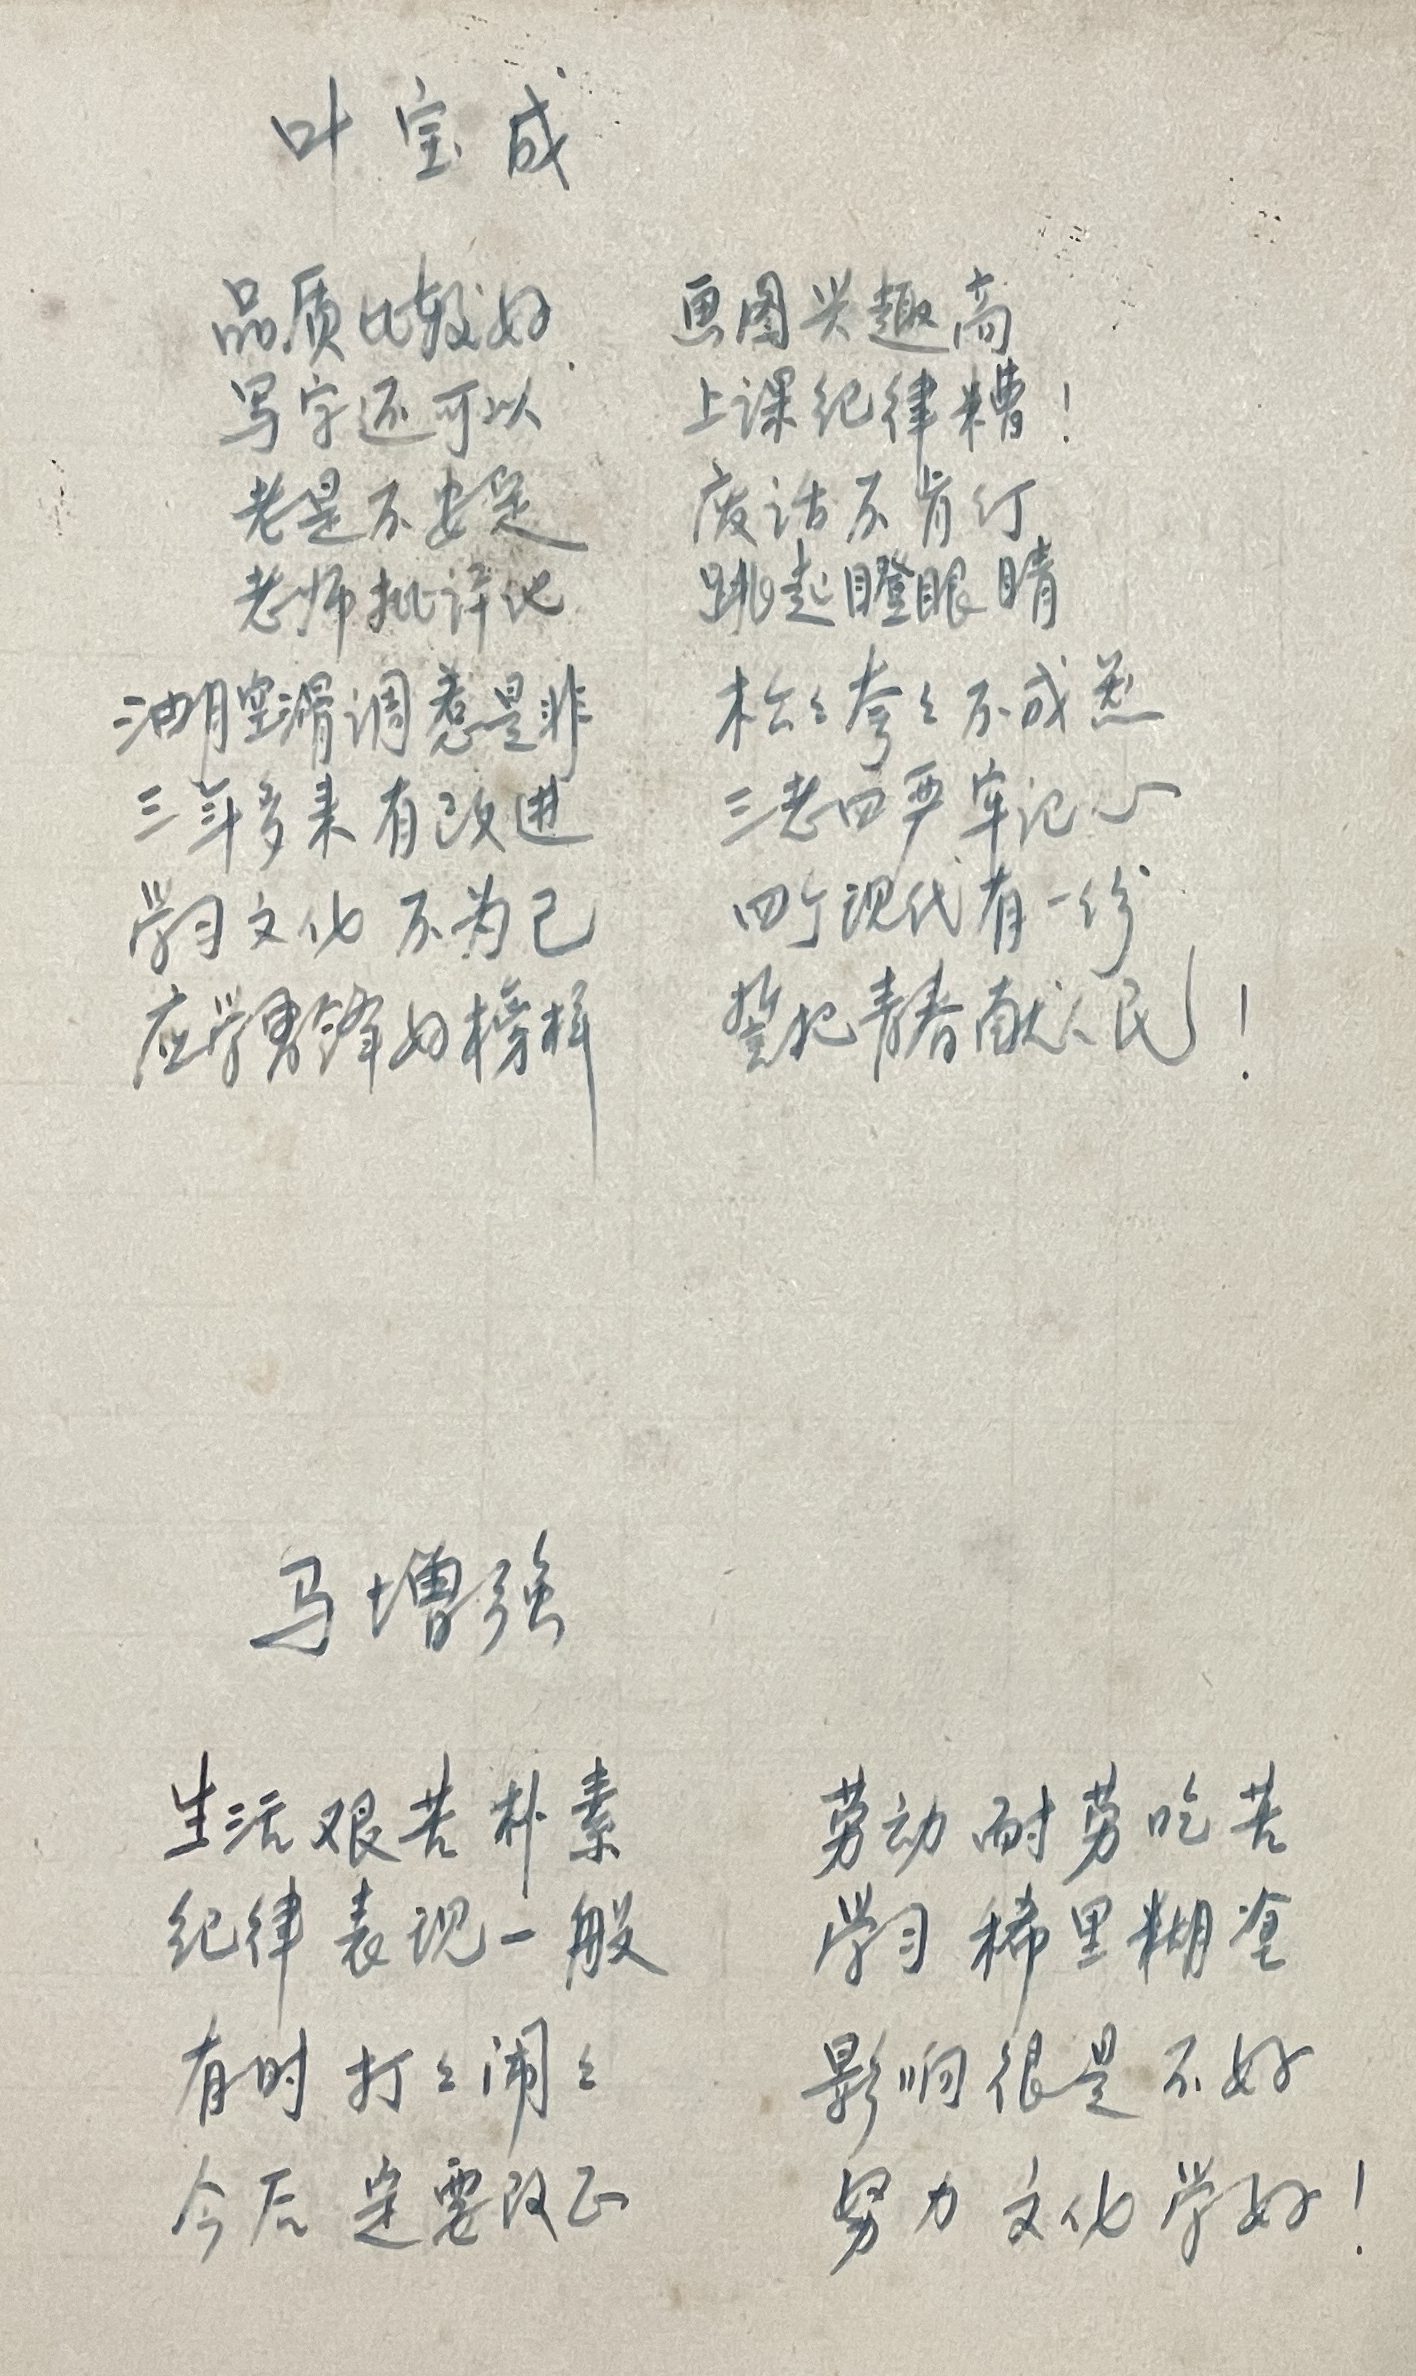 叶宝成
品质比较好 画图兴趣高
写字还可以 上课纪律糟!
老是不安定 废话不肯行
老师批评他 跳起瞪眼睛
油腔滑调惹是非 松々夸々不成器
三年多来有改进 三老四严牢记心
学习文化不为己 四个现代有一份
应学雷锋好榜样 誓把青春献人民!
马增强
生活艰苦朴素 劳动耐劳吃苦
纪律表现一般 学习稀里糊涂
有时打々闹々 影响很是不好
今后定要改正 努力文化学好!